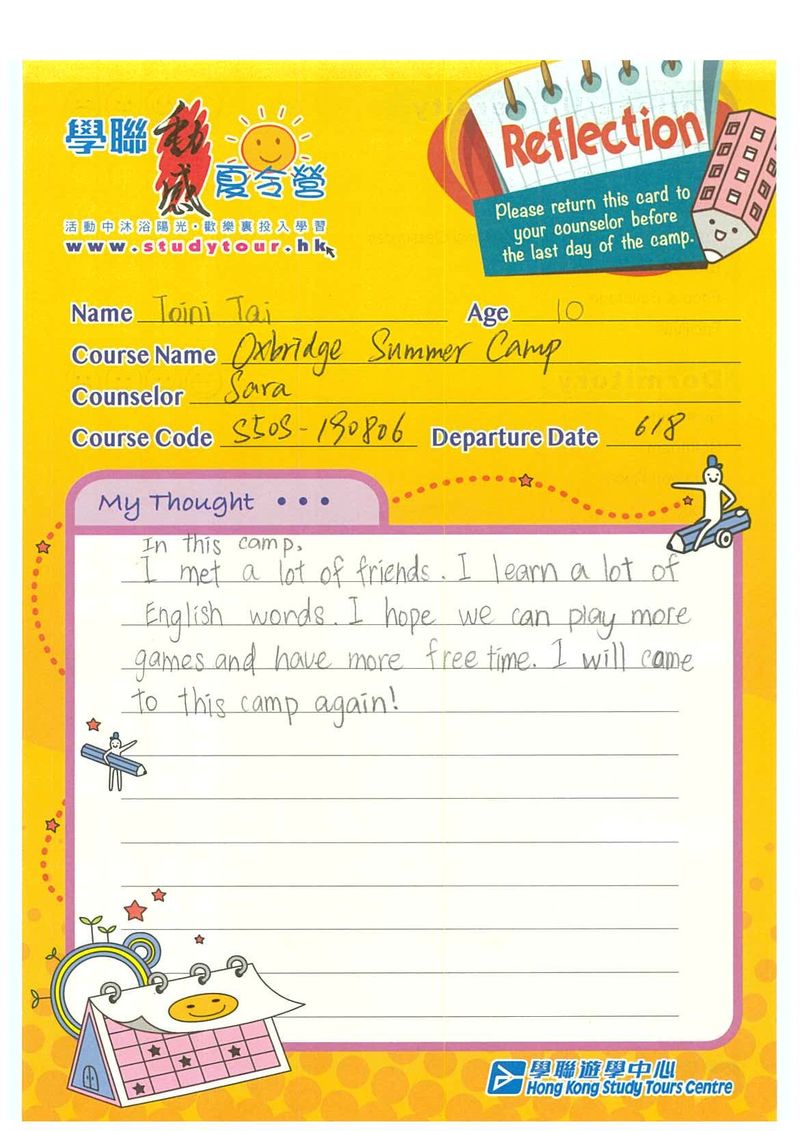 學聯 動感 夏令營
活動中沐浴陽光・歡樂裏投入學習
www.studytour.hk
Reflection
Please return this card to
your counselor before
the last day of the camp.
Name Toini Tai Age 10
Course Name Oxbridge Summer Camp
Counselor Sara
Course Code S50S-190806 Departure Date 6/8
My Thought • • •
In this camp,
I met a lot of friends. I learn a lot of
English words. I hope we can play more
games and have more free time. I will come
to this camp again!
學聯遊學中心
Hong Kong Study Tours Centre